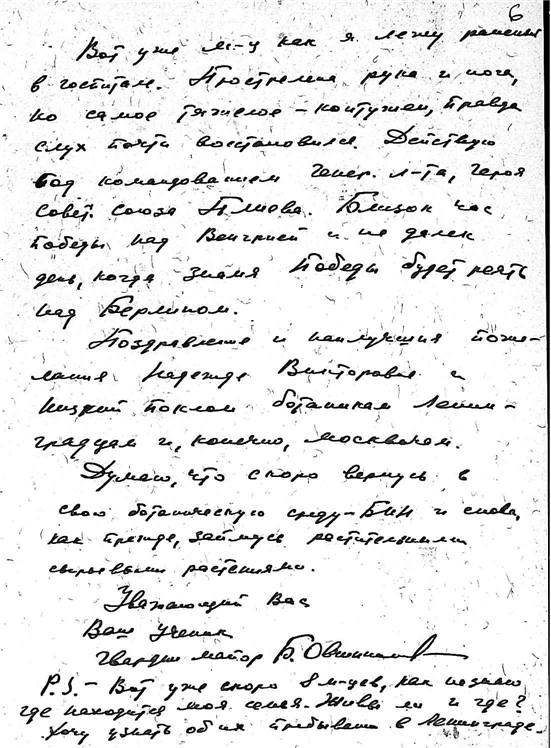 6
Вот уже м-ц как я лежу раненый
в госпитале. Прострелена рука и нога,
но самое тяжелое – контужен, правда
слух почти восстановился. Действую
под командованием генер. л-та, героя
Совет. Союза Плиева. Близок час
победы над Венгрией и не далек
день, когда знамя Победы будет реять
над Берлином.
Поздравление и наилучшия поже-
лания Надежде Викторовне и
низкий поклон ботаникам Ленин-
градцам и, конечно, москвичам.
Думаю, что скоро вернусь в
свою ботаническую среду – БИН и снова,
как прежде, займусь растительными
сырьевыми растениями.
Уважающий Вас
Ваш ученик
гвардии майор Б.
P.S. – Вот уже скоро 8 м-цев, как не знаю
где находится моя семья. Живы ли и где?
Хочу узнать об их пребывании в Ленинграде.